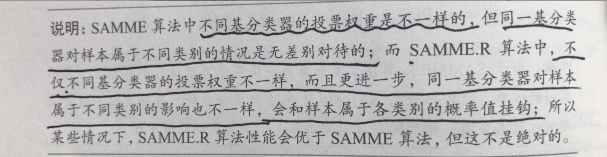 说明：SAMME 算法中不同基分类器的投票权重是不一样的，但同一基分类
器对样本属于不同类别的情况是无差别对待的；而 SAMME.R 算法中，不
仅不同基分类器的投票权重不一样，而且更进一步，同一基分类器对样本
属于不同类别的影响也不一样，会和样本属于各类别的概率值挂钩；所以
某些情况下，SAMME.R 算法性能会优于 SAMME 算法，但这不是绝对的。